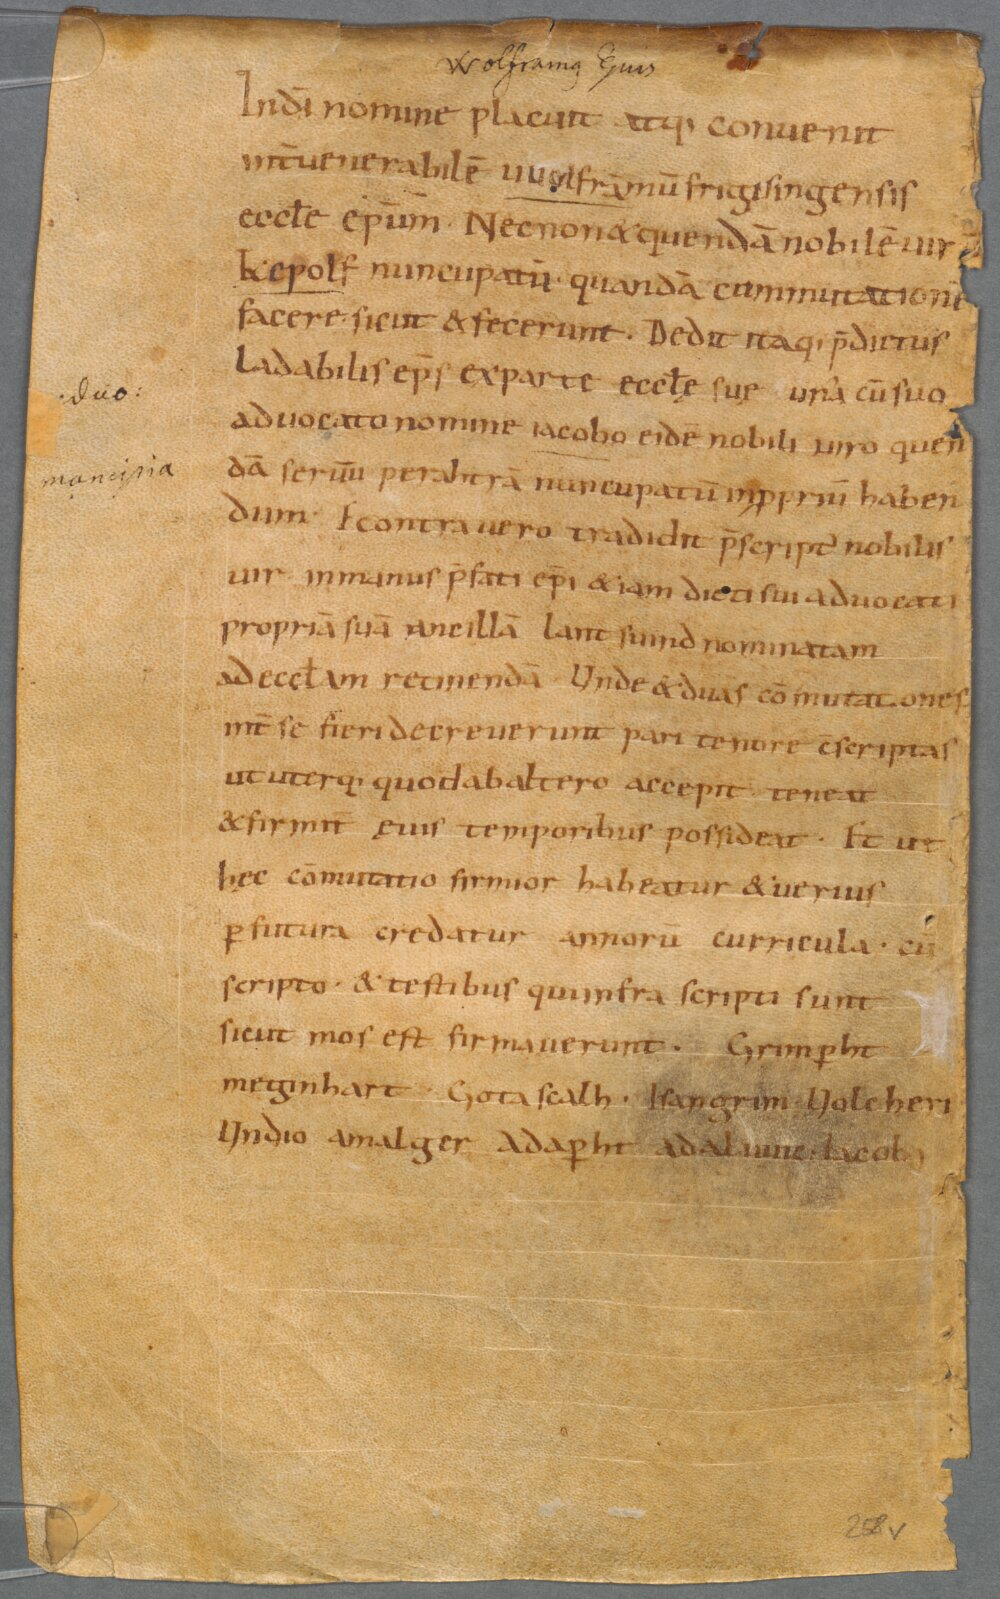 Wolframꝰ Ep̄us
In dī nomine placuit atq; conuenit
int̄ uenerabilē uuolframū frigisingensis
eccłe ep̄um. Necnon & quendā nobilē uirū
kepolf nuncupatū. quandā cummutationē
facere. sicut & fecerunt. Dedit itaq; p̄dictus
Ladabilis ep̄s ex parte eccłę suę una cū suo
aduocato nomine iacobo eidē nobili uiro quen
duo:
dā seruū perahtrā nuncupatū in pprriū haben
mancipia
dum. Econtra uero tradidit p̄script' nobilis
uir in manus p̄fati ep̄i & iam dicti sui aduocati
propriā suā ancillā lantsuuid nominatam
ad eccłam retinendā. Unde & duas cōmutationes
int̄ se fieri decreuerunt pari tenore c̄scriptas
ut uterq; quod ab altero accepit teneat
& firmit̄ ęuis temporibus possideat. Et ut
hęc cōmutatio firmior habeatur & uerius
ꝑ futura credatur annorū curricula. cū
scripto. & testibus qui infra scripti sunt
sicut mos est firmauerunt. Grimꝑht
meginhart. Gotascalh. Isangrim. Uolcheri
Undio amalger Adaꝑht adaluuic. Iacob
258v